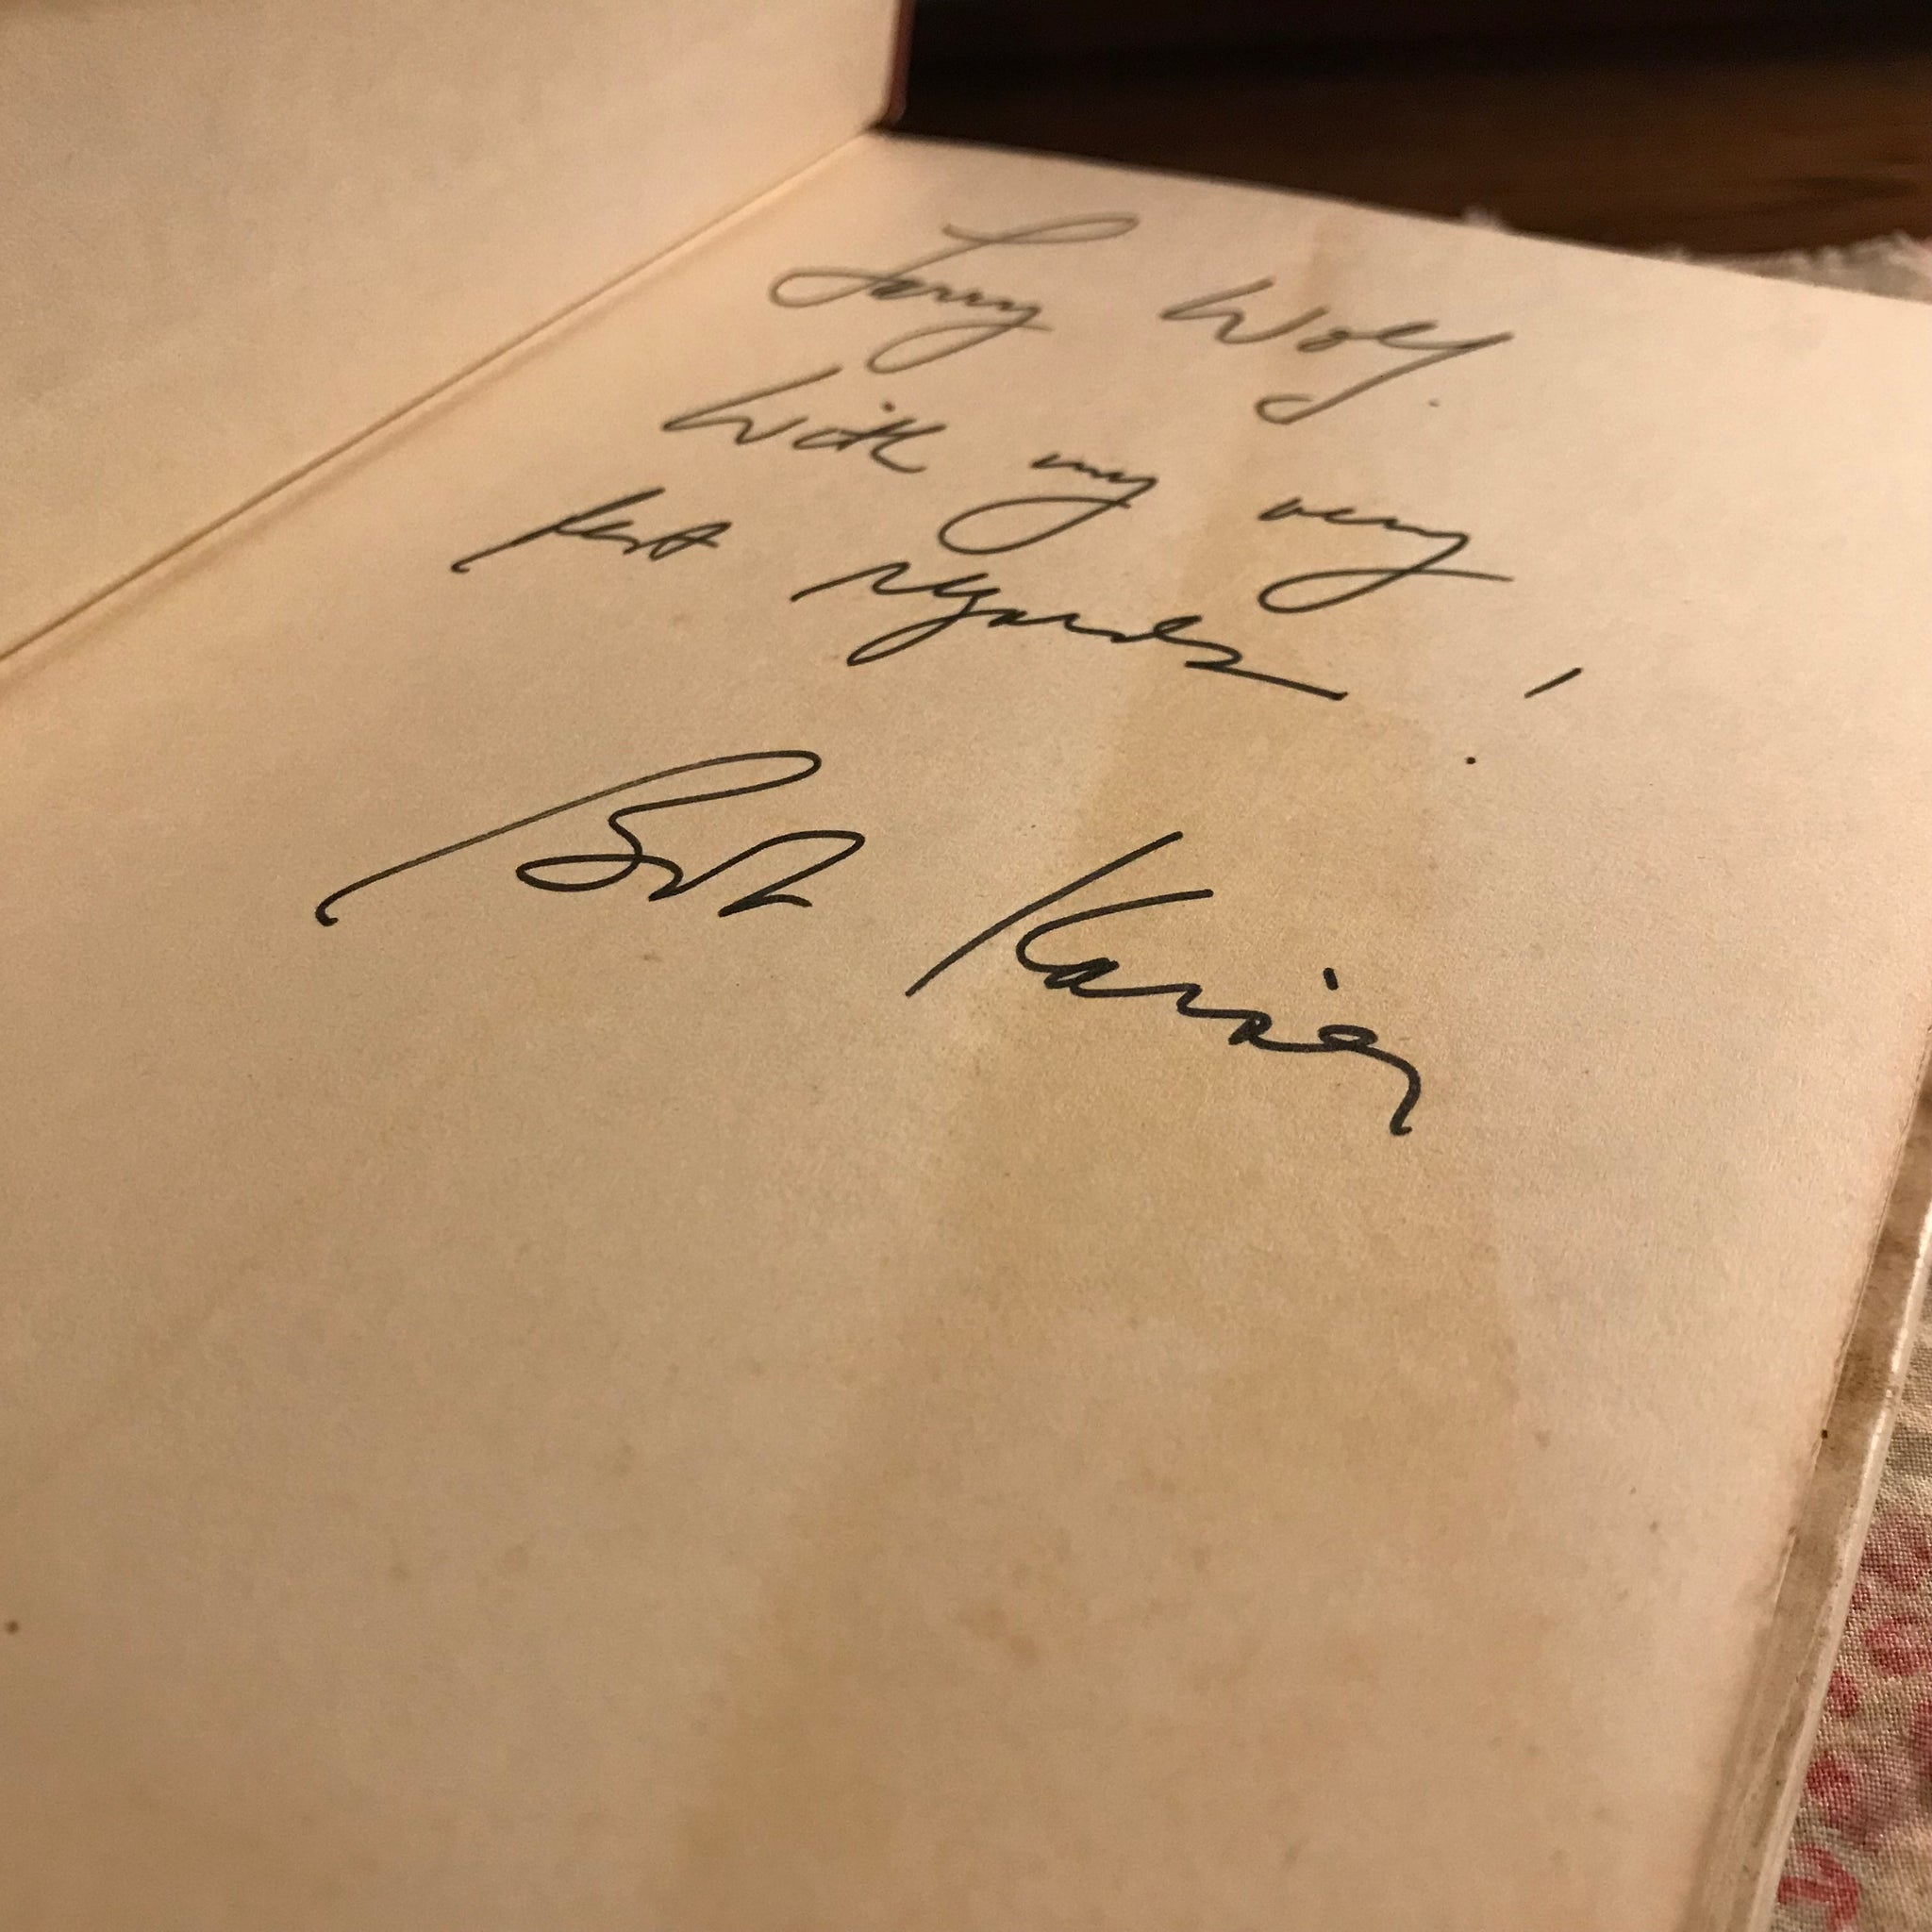 Larry Wolf.
With my very
best regards!
Bob